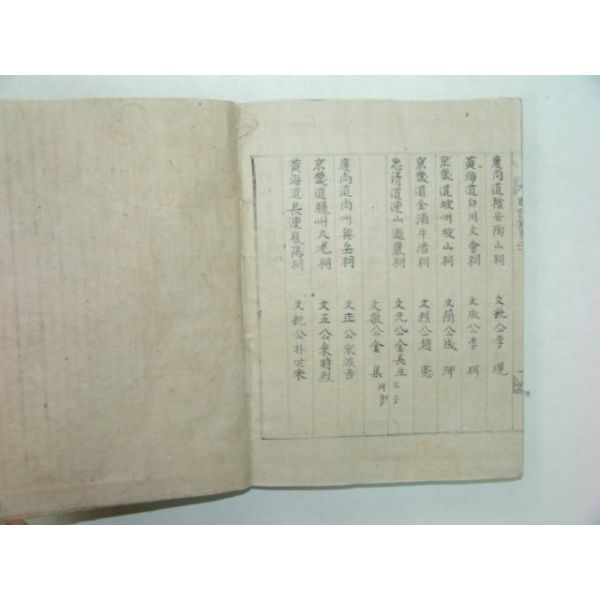 慶尚道陰安陶山祠 文純公李 滉
黃海道白川文會祠 文成公李 珥
京畿道坡州坡山祠 文簡公成 渾
京畿道金浦牛渚祠 文烈公趙 憲
忠清道連山遯巖祠 文元公金長生 父子
文敬公金 集 同享
慶尚道尚州興岳祠 文正公宋浚吉
京畿道驪州大老祠 文正公宋時烈
黃海道長連鳳陽祠 文純公朴世采